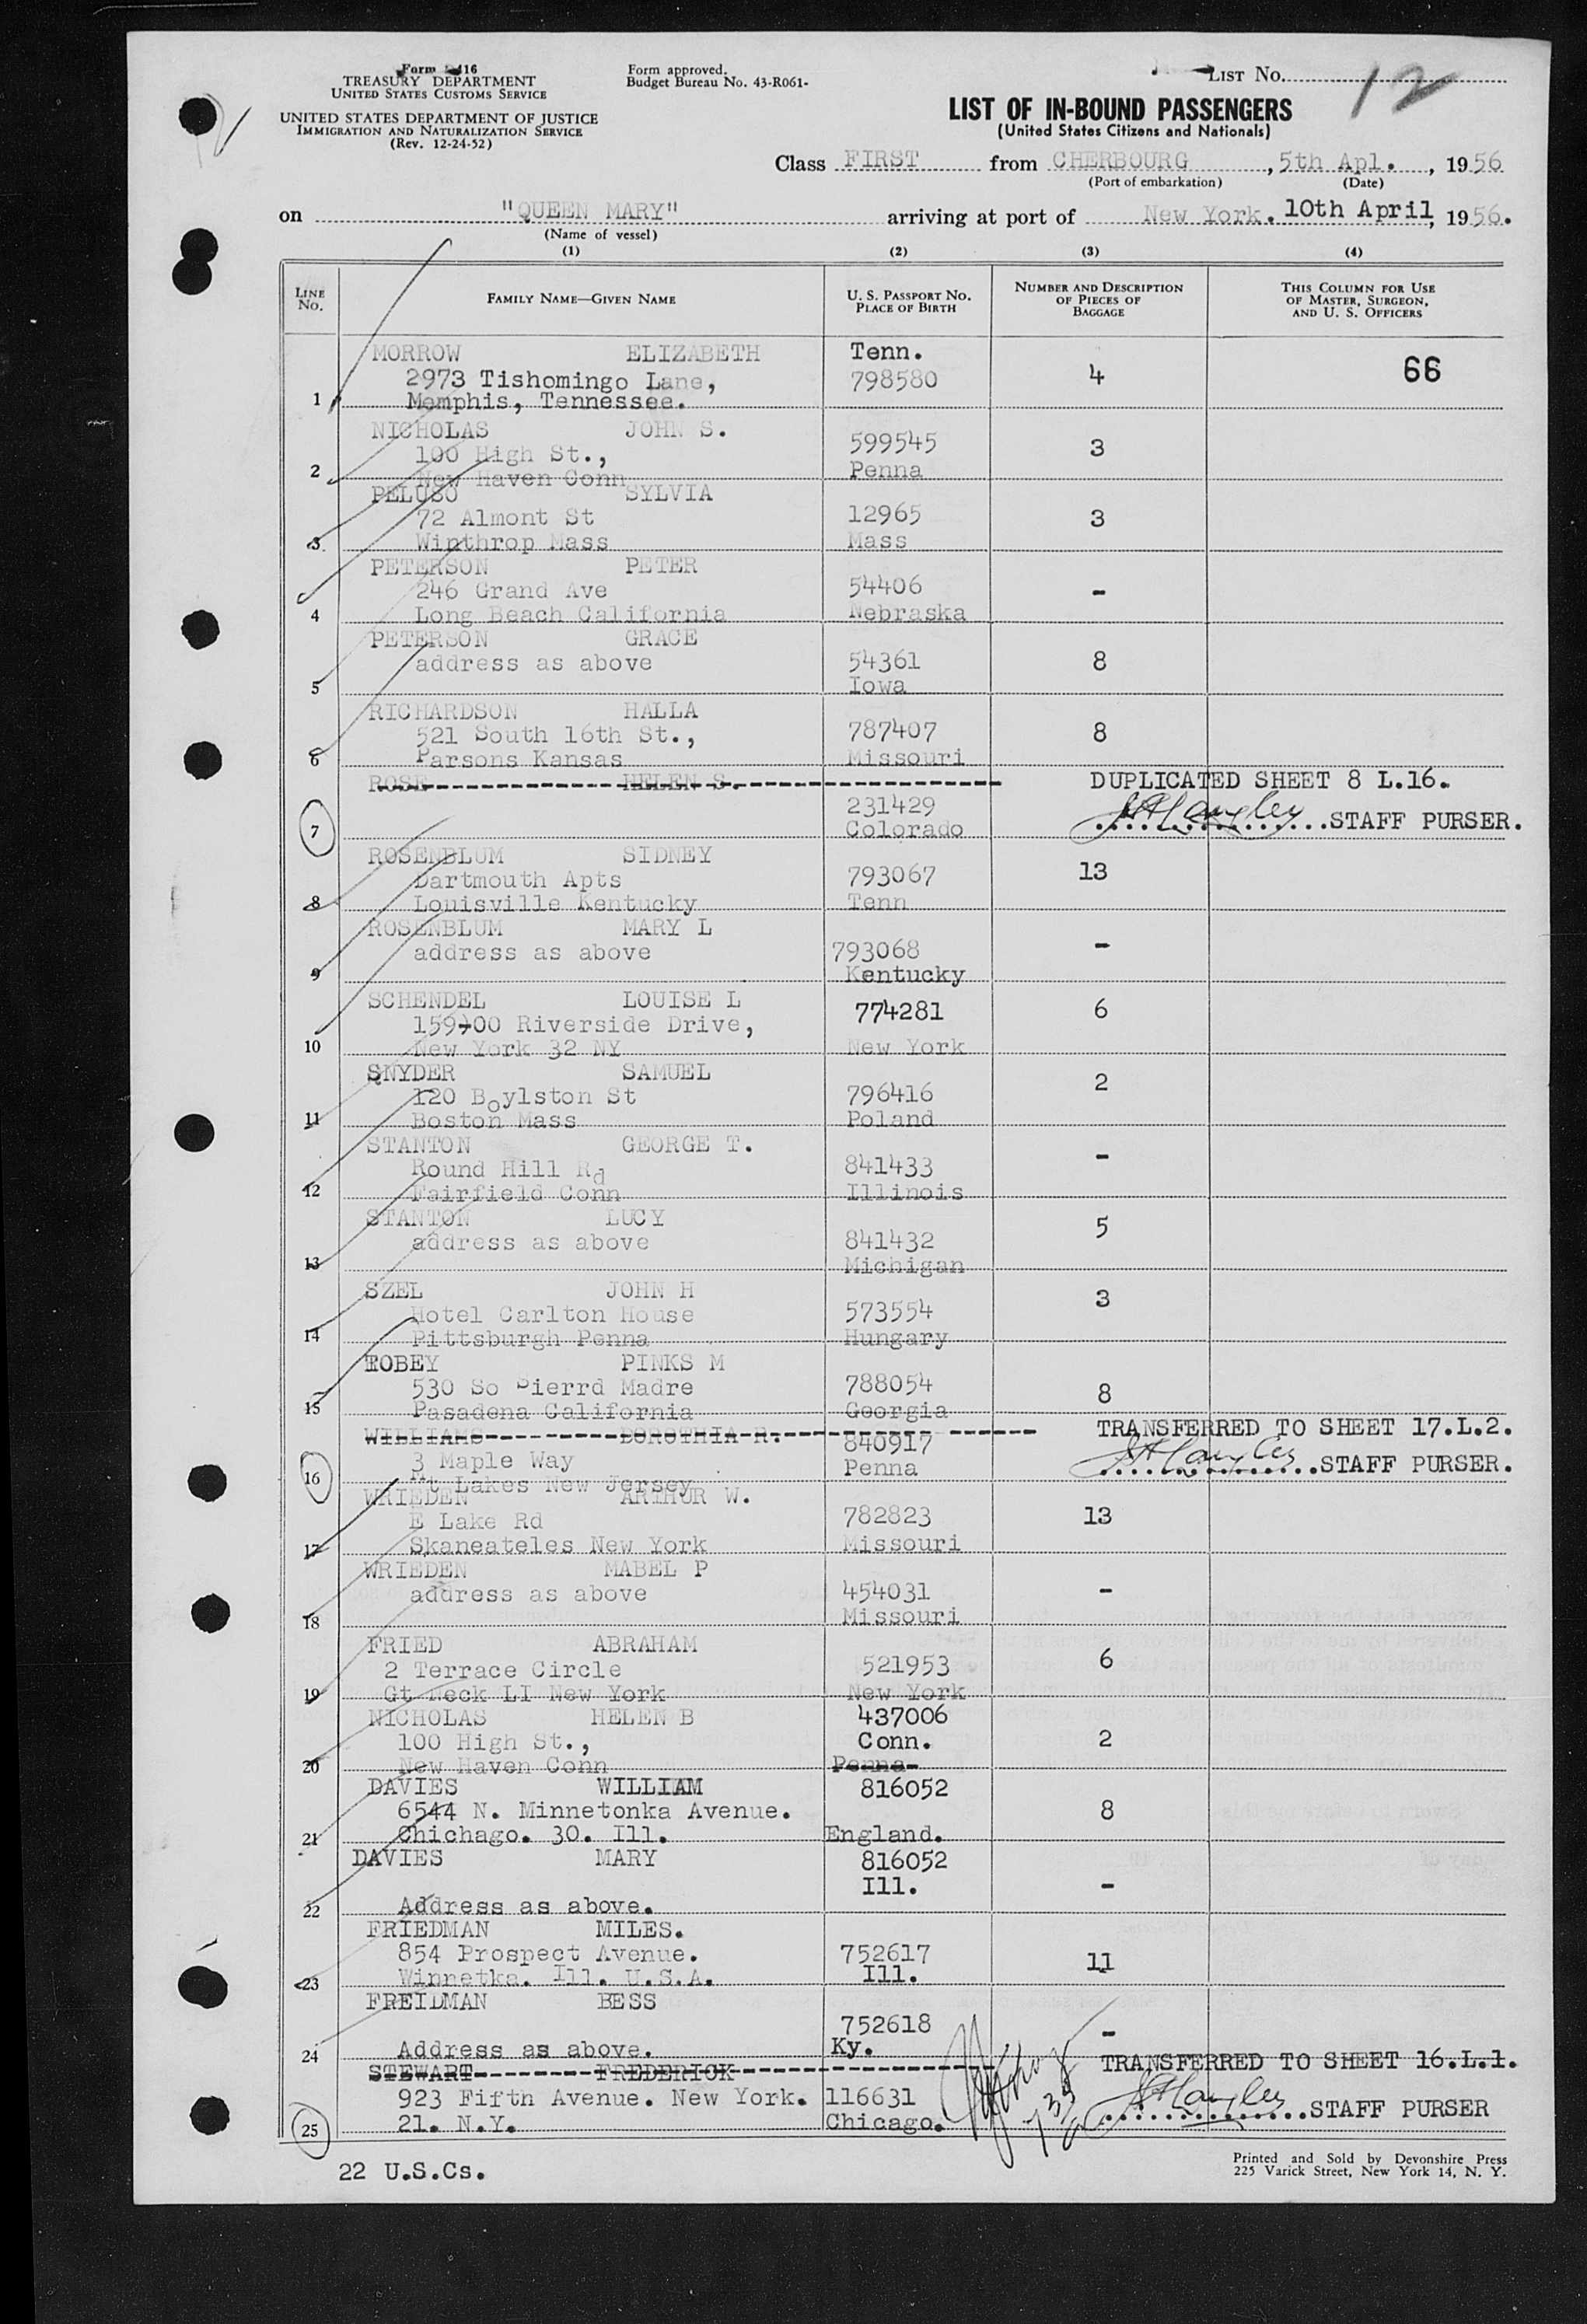 Form 2416
TREASURY DEPARTMENT
UNITED STATES CUSTOMS SERVICE
UNITED STATES DEPARTMENT OF JUSTICE
IMMIGRATION AND NATURALIZATION SERVICE
(Rev. 12-24-52)
Form approved.
Budget Bureau No. 43-R061-
LIST NO. 12
LIST OF IN-BOUND PASSENGERS
(United States Citizens and Nationals)
Class FIRST from CHERBOURG, 5th Apl., 1956
(Port of embarkation) (Date)
on "QUEEN MARY" arriving at port of New York. 10th April, 1956.
(Name of vessel)
(1) (2) (3) (4)
LINE NO. FAMILY NAME—GIVEN NAME U. S. PASSPORT NO. PLACE OF BIRTH NUMBER AND DESCRIPTION OF PIECES OF BAGGAGE THIS COLUMN FOR USE OF MASTER, SURGEON, AND U. S. OFFICERS
MORROW ELIZABETH Tenn. 66
2973 Tishomingo Lane, 798580 4
1 Memphis, Tennessee.
NICHOLAS JOHN S.
100 High St., 599545 3
2 New Haven Conn Penna
PELUSO SYLVIA
72 Almont St 12965 3
3 Winthrop Mass Mass
PETERSON PETER
246 Grand Ave 54406 -
4 Long Beach California Nebraska
PETERSON GRACE
address as above 54361 8
5 Iowa
RICHARDSON HALLA
521 South 16th St., 787407 8
6 Parsons Kansas Missouri
ROSE HELEN S. DUPLICATED SHEET 8 L.16.
231429
7 Colorado STAFF PURSER.
ROSENBLUM SIDNEY
Dartmouth Apts 793067 13
8 Louisville Kentucky Tenn
ROSENBLUM MARY L
address as above 793068 -
9 Kentucky
SCHENDEL LOUISE L
159-00 Riverside Drive, 774281 6
10 New York 32 NY New York
SNYDER SAMUEL
120 Boylston St 796416 2
11 Boston Mass Poland
STANTON GEORGE T.
Round Hill Rd 841433 -
12 Fairfield Conn Illinois
STANTON LUCY
address as above 841432 5
13 Michigan
SZEL JOHN H
Hotel Carlton House 573554 3
14 Pittsburgh Penna Hungary
TOBEY PINKS M
530 So Sierrd Madre 788054 8
15 Pasadena California Georgia
WILLIAMS DOROTHIA R. 840917 TRANSFERRED TO SHEET 17.L.2.
3 Maple Way Penna STAFF PURSER.
16 Mt Lakes New Jersey
WRIEDEN ARTHUR W.
E Lake Rd 782823 13
17 Skaneateles New York Missouri
WRIEDEN MABEL P
address as above 454031 -
18 Missouri
FRIED ABRAHAM
2 Terrace Circle 521953 6
19 Gt Neck LI New York New York
NICHOLAS HELEN B 437006
100 High St., Conn. 2
20 New Haven Conn Penna
DAVIES WILLIAM 816052
6544 N. Minnetonka Avenue. 8
21 Chichago. 30. Ill. England.
DAVIES MARY 816052
Ill. -
22 Address as above.
FRIEDMAN MILES.
854 Prospect Avenue. 752617 11
23 Winnetka. Ill. U.S.A. Ill.
FREIDMAN BESS
752618 -
24 Address as above. Ky.
STEWART FREDERICK TRANSFERRED TO SHEET 16.L.1.
923 Fifth Avenue. New York. 116631
25 21. N.Y. Chicago. STAFF PURSER
22 U.S.Cs.
Printed and Sold by Devonshire Press
225 Varick Street, New York 14, N. Y.